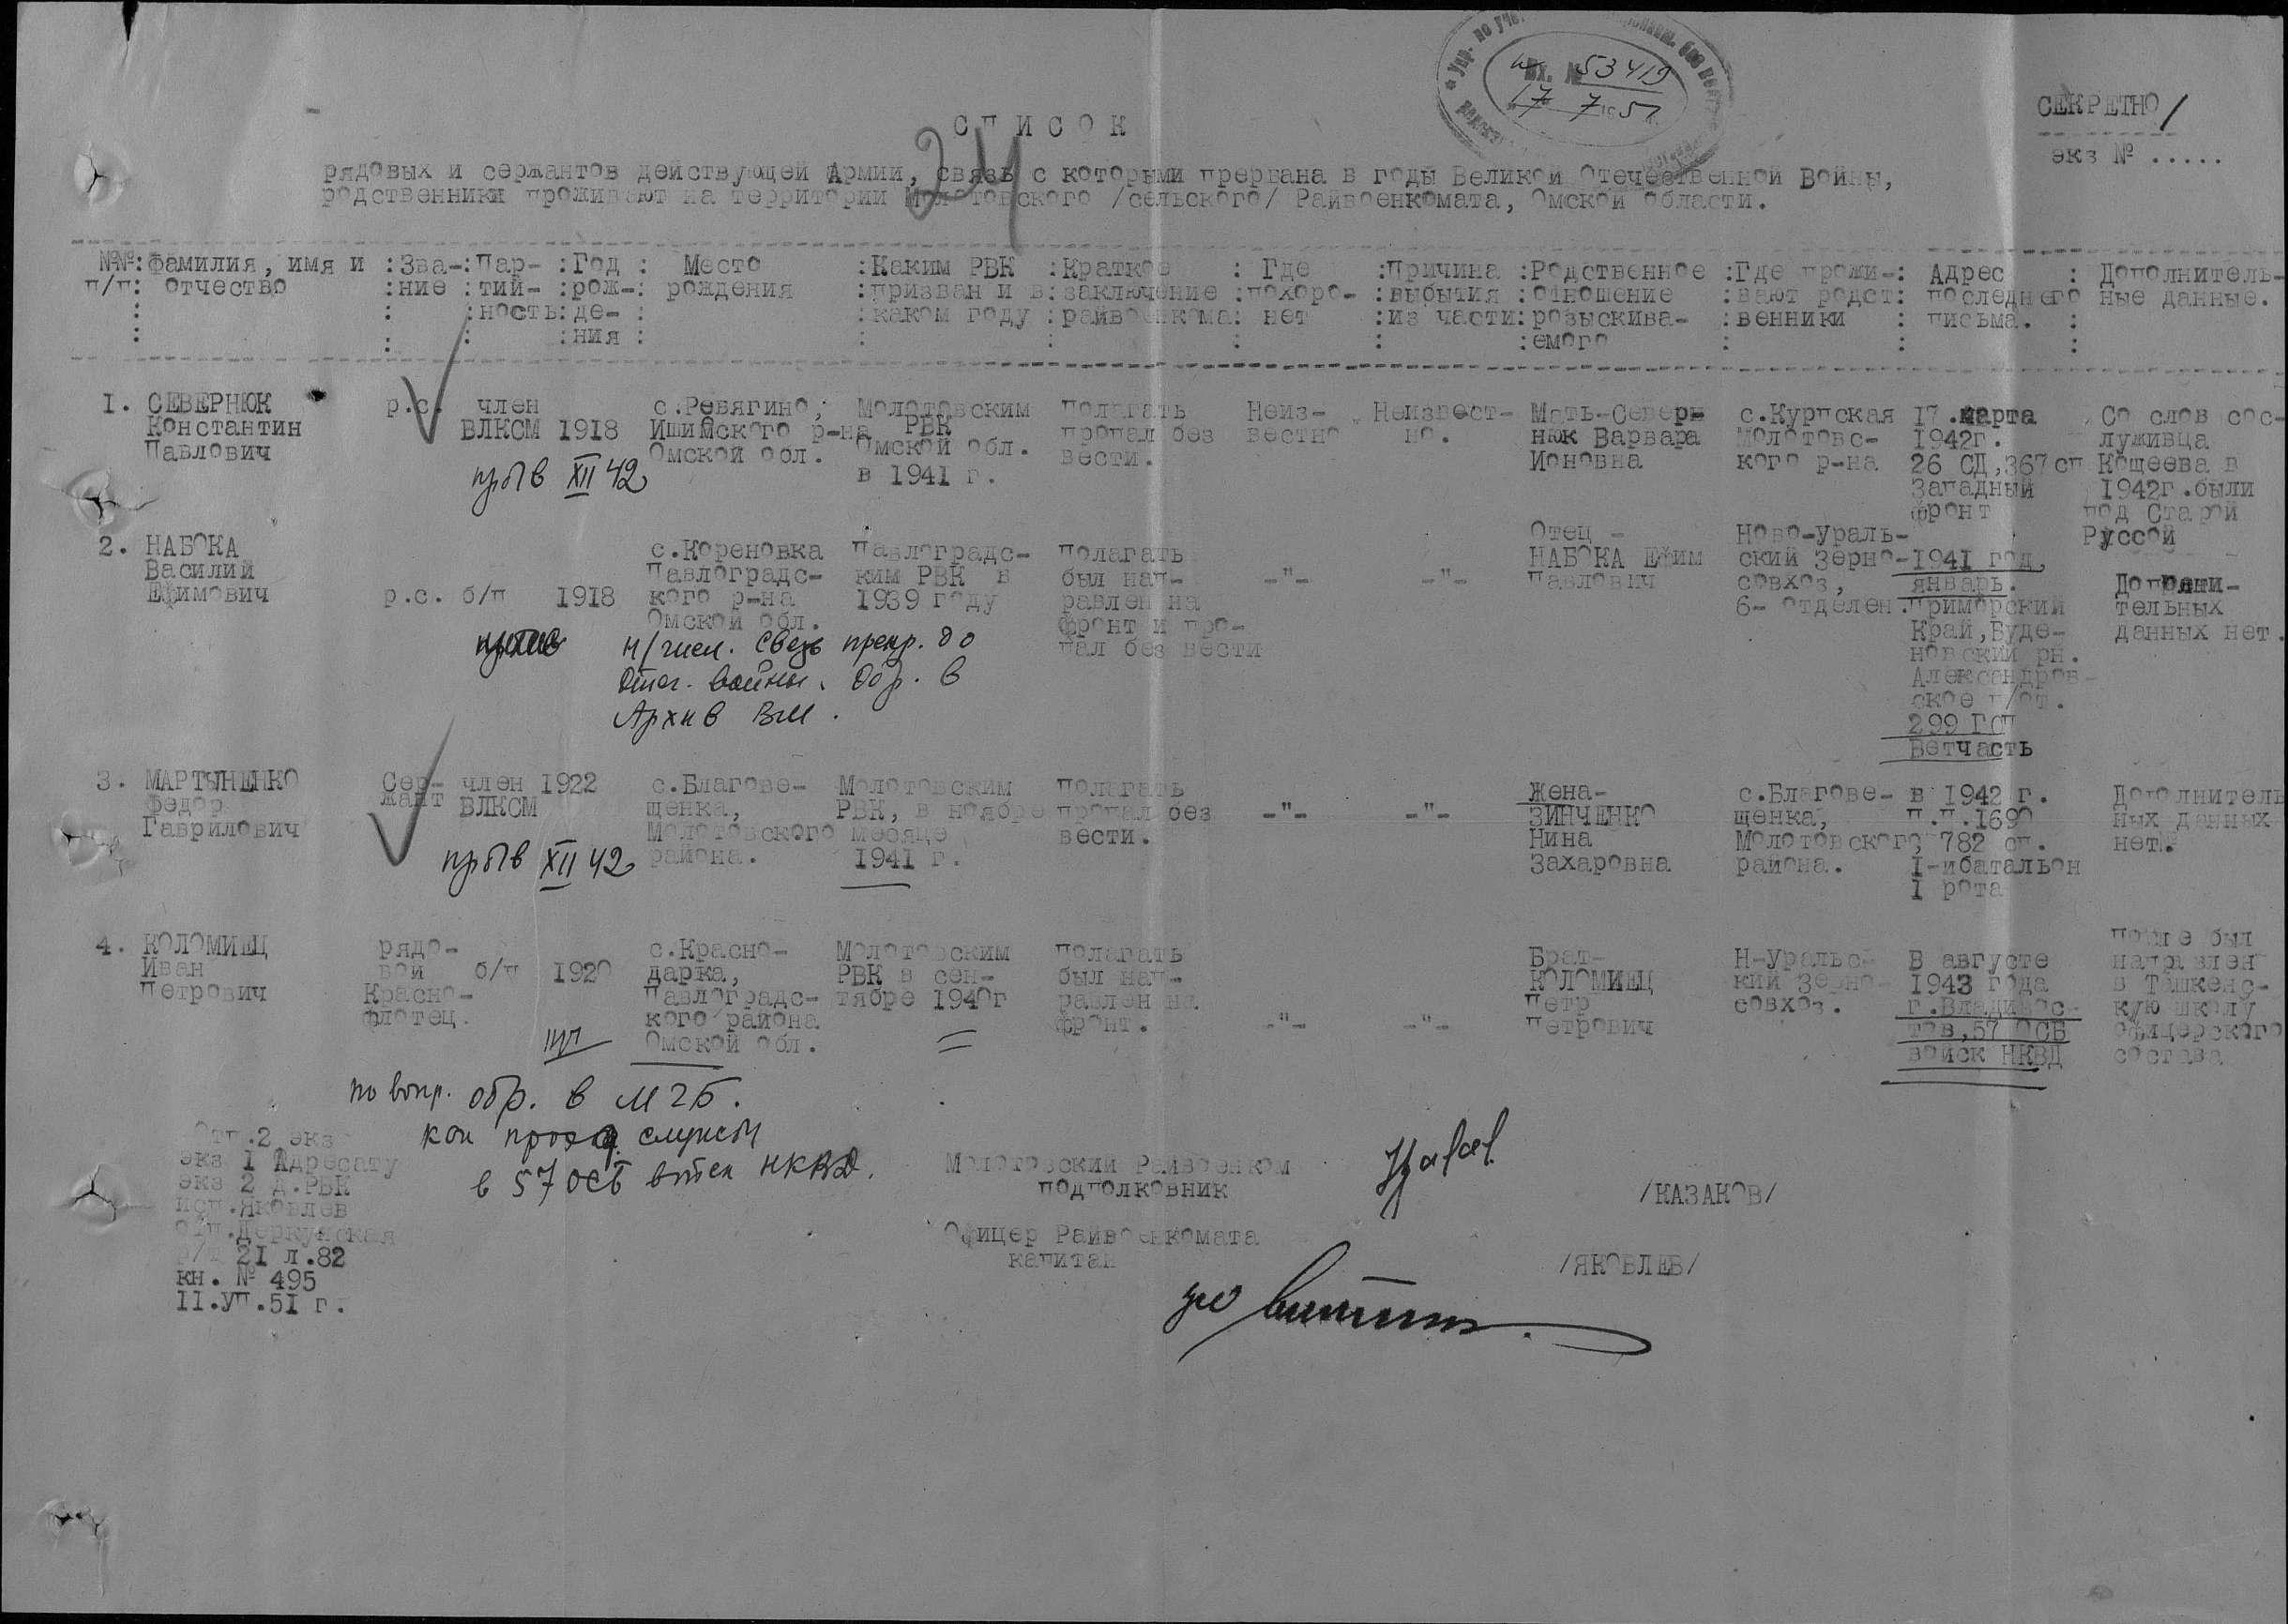 Вх. № 53419
17 7 1951
СЕКРЕТНО
экз № .....
СПИСОК
24
рядовых и сержантов действующей Армии, связь с которыми прервана в годы Великой Отечественной Войны,
родственники проживают на территории Молотовского /сельского/ Райвоенкомата, Омской области.
№№ п/п
Фамилия, имя и отчество
Звание
Партийность
Год рождения
Место рождения
Каким РВК призван и в каком году
Краткое заключение райвоенкома
Где похоронет
Причина выбытия из части
Родственное отношение розыскиваемого
Где проживают родственники
Адрес последнего письма.
Дополнительные данные.
1. СЕВЕРНЮК
Константин
Павлович
р.с.
член
ВЛКСМ 1918
с.Ревягино,
Ишимского р-на
Омской обл.
Молотовским
РВК
Омской обл.
в 1941 г.
полагать
пропал без
вести.
Неиз-
вестно
Неизвест-
но.
Мать-Северн-
нюк Варвара
Ионовна
с.Курпская
Молотовс-
кого р-на
17 .марта
1942г.
26 СД,367 сп
Западный
фронт
Со слов сос-
луживца
Кощеева в
1942г.были
под Старой
Руссой
пр б/в XII 42
2. НАБОКА
Василий
Ефимович
р.с. б/п 1918
с.Кореновка
Павлоградс-
кого р-на
Омской обл.
Павлоградс-
ким РВК в
1939 году
полагать
был нап-
равлен на
фронт и про-
пал без вести
-"-
-"-
Отец -
НАБОКА Ефим
Павлович
Ново-Ураль-
ский Зерно-
совхоз,
6- отделен.
1941 год,
январь.
Приморский
Край,Буде-
новский рн.
Александров-
ское п/от.
299 ГСП
Ветчасть
тельных
данных нет.
Н/числ. Связь прекр. до
Отеч. войны. Обр. в
Архив ВМ.
3. МАРТЫНЕНКО
Федор
Гаврилович
Сер-
жант
член 1922
ВЛКСМ
с.Благове-
щенка,
Молотовского
района.
Молотовским
РВК, в ноябре
месяце
1941 г.
полагать
пропал без
вести.
-"-
-"-
Жена-
ЗИНЧЕНКО
Нина
Захаровна
с.Благове-
щенка,
Молотовского
района.
в 1942 г.
П.П.1690
782 сп.
I-ибатальон
I рота
Дополнитель
ных данных
нет.
пр б/в XII 42
4. КОЛОМИЕЦ
Иван
Петрович
рядо-
вой
Красно-
флотец.
б/п 1920
с.Красно-
дарка,
Павлоградс-
кого района
Омской обл.
Молотовским
РВК в сен-
тябре 1940г
полагать
был нап-
равлен на
фронт.
-"-
-"-
Брат-
КОЛОМИЕЦ
Петр
Петрович
Н-Уральс-
кий Зерно-
совхоз.
В августе
1943 года
г.Владивос-
ток,57 ОСБ
войск НКВД
после был
направлен
в Ташкенс-
кую школу
офицерского
состава
по вопр. обр. в МГБ.
служ
в 57 ОСБ войск НКВД.
Отп.2 экз
экз 1 Адресату
экз 2 д.РВК
исп.Яковлев
21 л.82
кн. № 495
11.УП.51 г.
Молотовский Райвоенком
подполковник
/КАЗАКОВ/
Офицер Райвоенкомата
капитан
/ЯКОВЛЕВ/